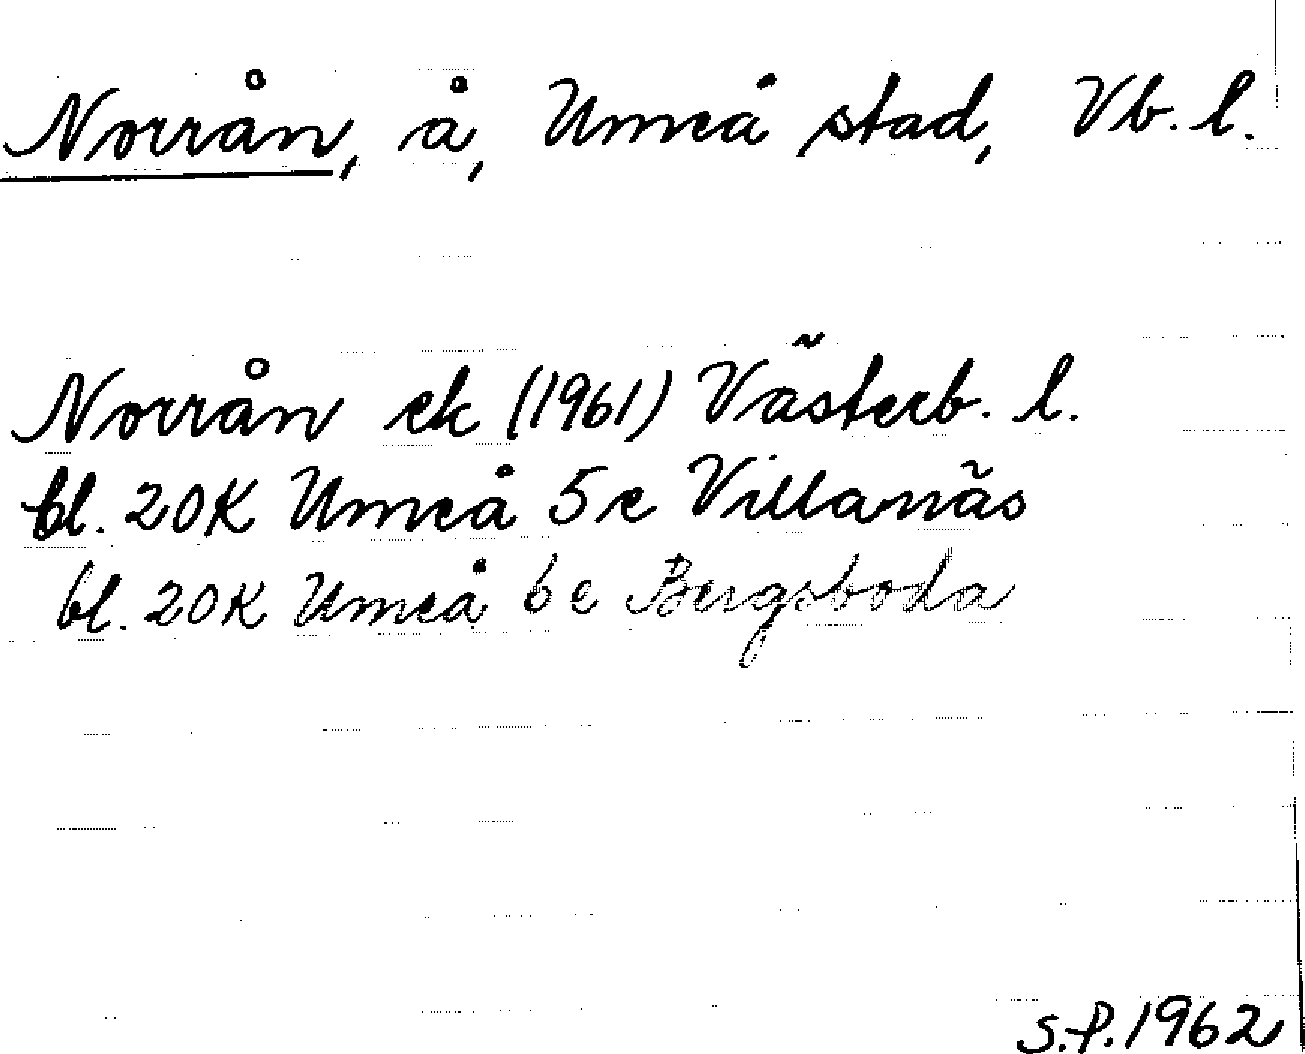 Norrån, å, Umeå stad, Vb. l.
Norrån ek (1961) Västerb. l.
bl. 20K Umeå 5e Villanäs
bl. 20K Umeå 6e Bergsboda
S.P. 1962